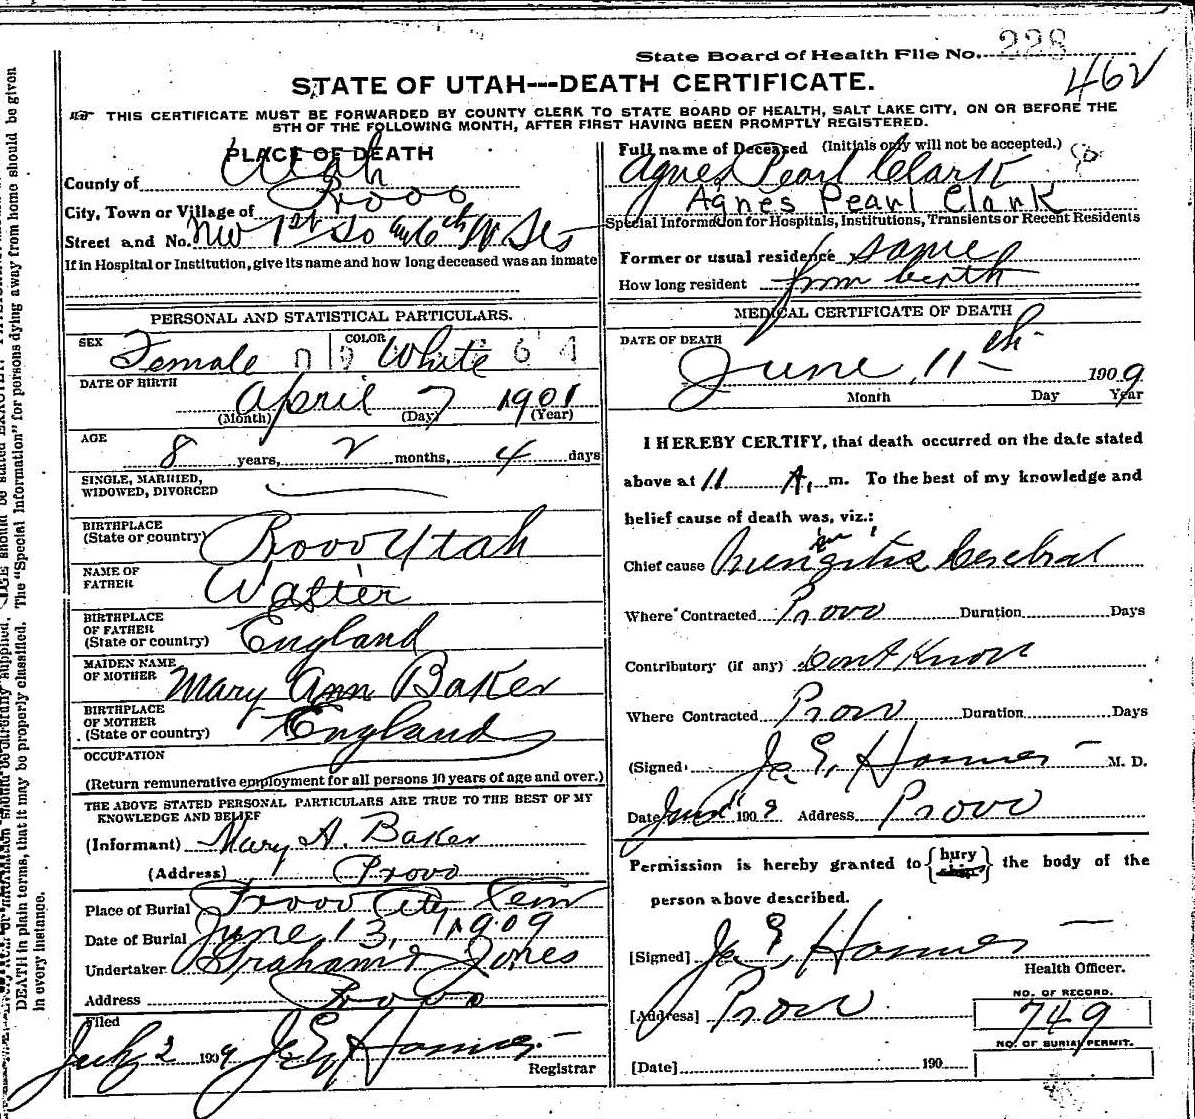 State Board of Health File No. 228
462
STATE OF UTAH---DEATH CERTIFICATE.
THIS CERTIFICATE MUST BE FORWARDED BY COUNTY CLERK TO STATE BOARD OF HEALTH, SALT LAKE CITY, ON OR BEFORE THE
5TH OF THE FOLLOWING MONTH, AFTER FIRST HAVING BEEN PROMPTLY REGISTERED.
PLACE OF DEATH
County of Utah
City, Town or Village of Provo
Street and No. NW 1st So 6th W
If in Hospital or Institution, give its name and how long deceased was an inmate
PERSONAL AND STATISTICAL PARTICULARS.
SEX Female COLOR White
DATE OF BIRTH
April 7 1901
(Month) (Day) (Year)
AGE
8 years, 2 months, 4 days
SINGLE, MARRIED,
WIDOWED, DIVORCED
BIRTHPLACE
(State or country) Provo Utah
NAME OF
FATHER Walter
BIRTHPLACE
OF FATHER
(State or country) England
MAIDEN NAME
OF MOTHER Mary Ann Baker
BIRTHPLACE
OF MOTHER
(State or country) England
OCCUPATION
(Return remunerative employment for all persons 10 years of age and over.)
THE ABOVE STATED PERSONAL PARTICULARS ARE TRUE TO THE BEST OF MY
KNOWLEDGE AND BELIEF
(Informant) Mary A. Baker
(Address) Provo
Place of Burial Provo City Cem
Date of Burial June 13, 1909
Undertaker Graham & Jones
Address Provo
Filed
July 2 1909
Registrar
Full name of Deceased (Initials only will not be accepted.)
Agnes Pearl Clark
Agnes Pearl Clark
Special Information for Hospitals, Institutions, Transients or Recent Residents
Former or usual residence same
How long resident from birth
MEDICAL CERTIFICATE OF DEATH
DATE OF DEATH
June 11th 1909
Month Day Year
I HEREBY CERTIFY, that death occurred on the date stated
above at 11 A. m. To the best of my knowledge and
belief cause of death was, viz.:
Chief cause Meningitis Cerebral
Where Contracted Provo Duration Days
Contributory (if any) Dont Know
Where Contracted Provo Duration Days
(Signed) M. D.
Date June 11 1909 Address Provo
Permission is hereby granted to {bury} the body of the
person above described.
[Signed]
Health Officer.
[Address] Provo
NO. OF RECORD.
749
NO. OF BURIAL PERMIT.
[Date] 190
DEATH in plain terms, that it may be properly classified. The "Special Information" for persons dying away from home should be given
in every instance.